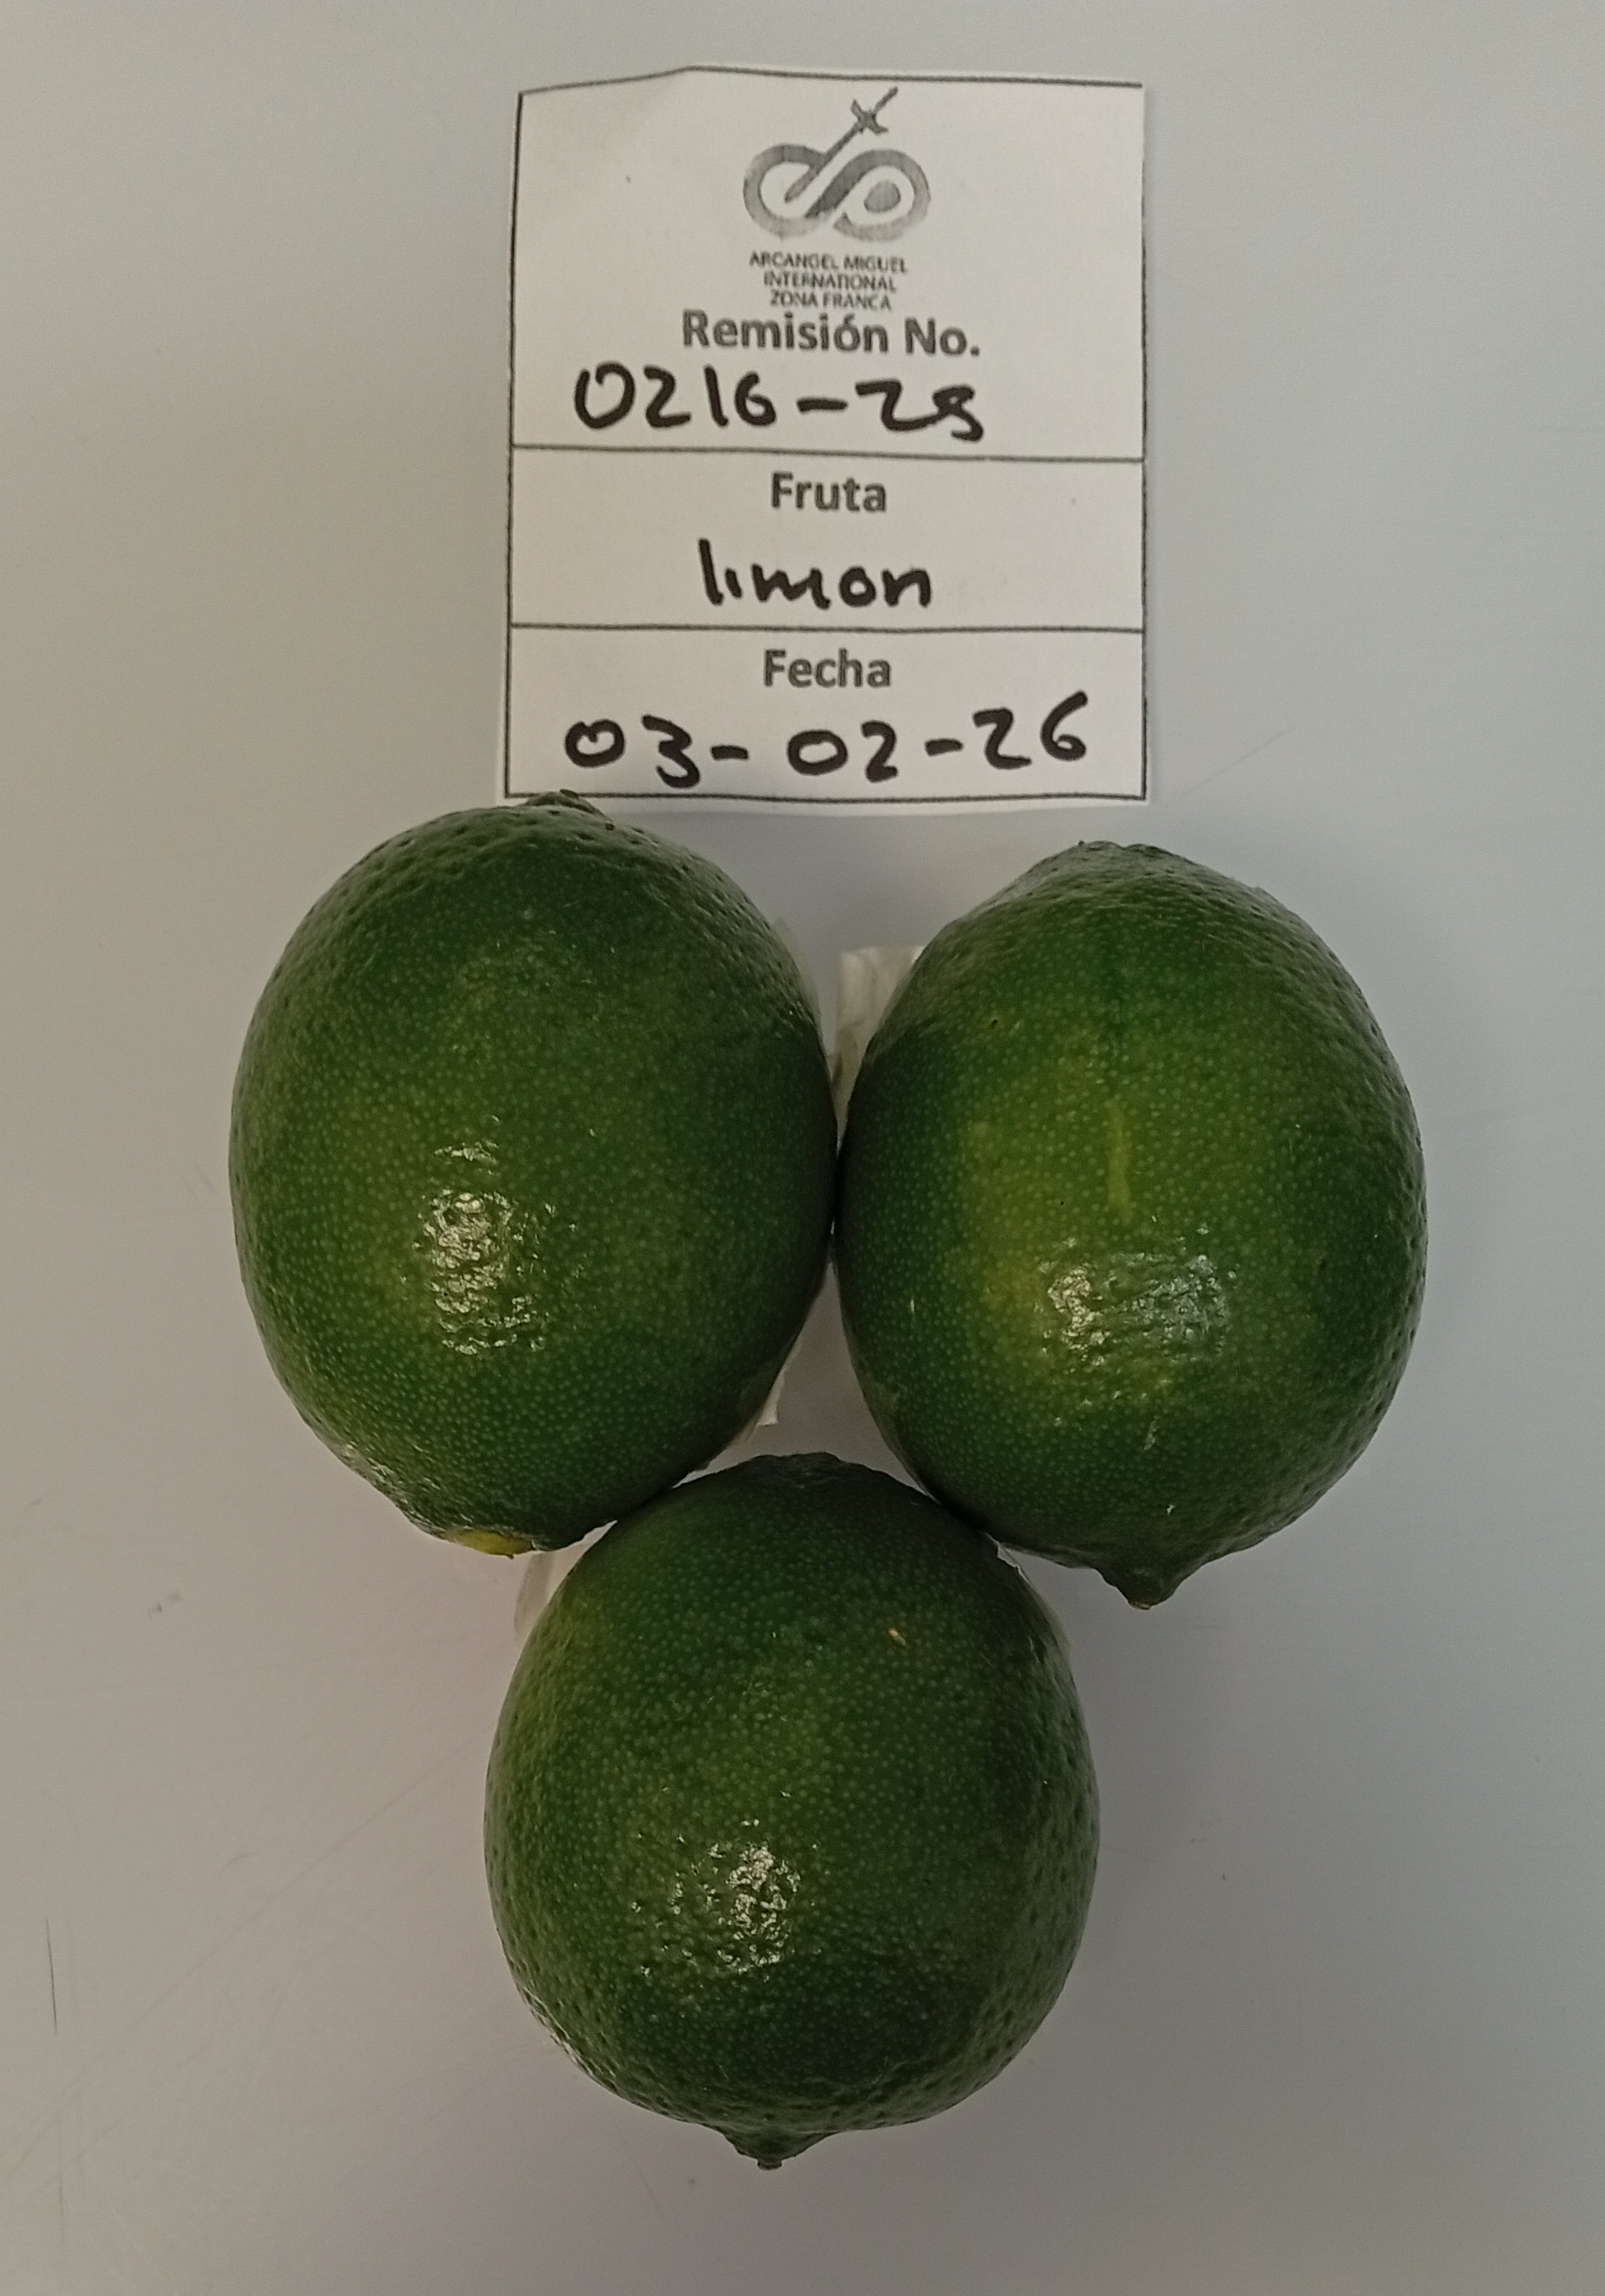 ARCANGEL MIGUEL
INTERNATIONAL
ZONA FRANCA
Remisión No.
0216-29
Fruta
limon
Fecha
03-02-26